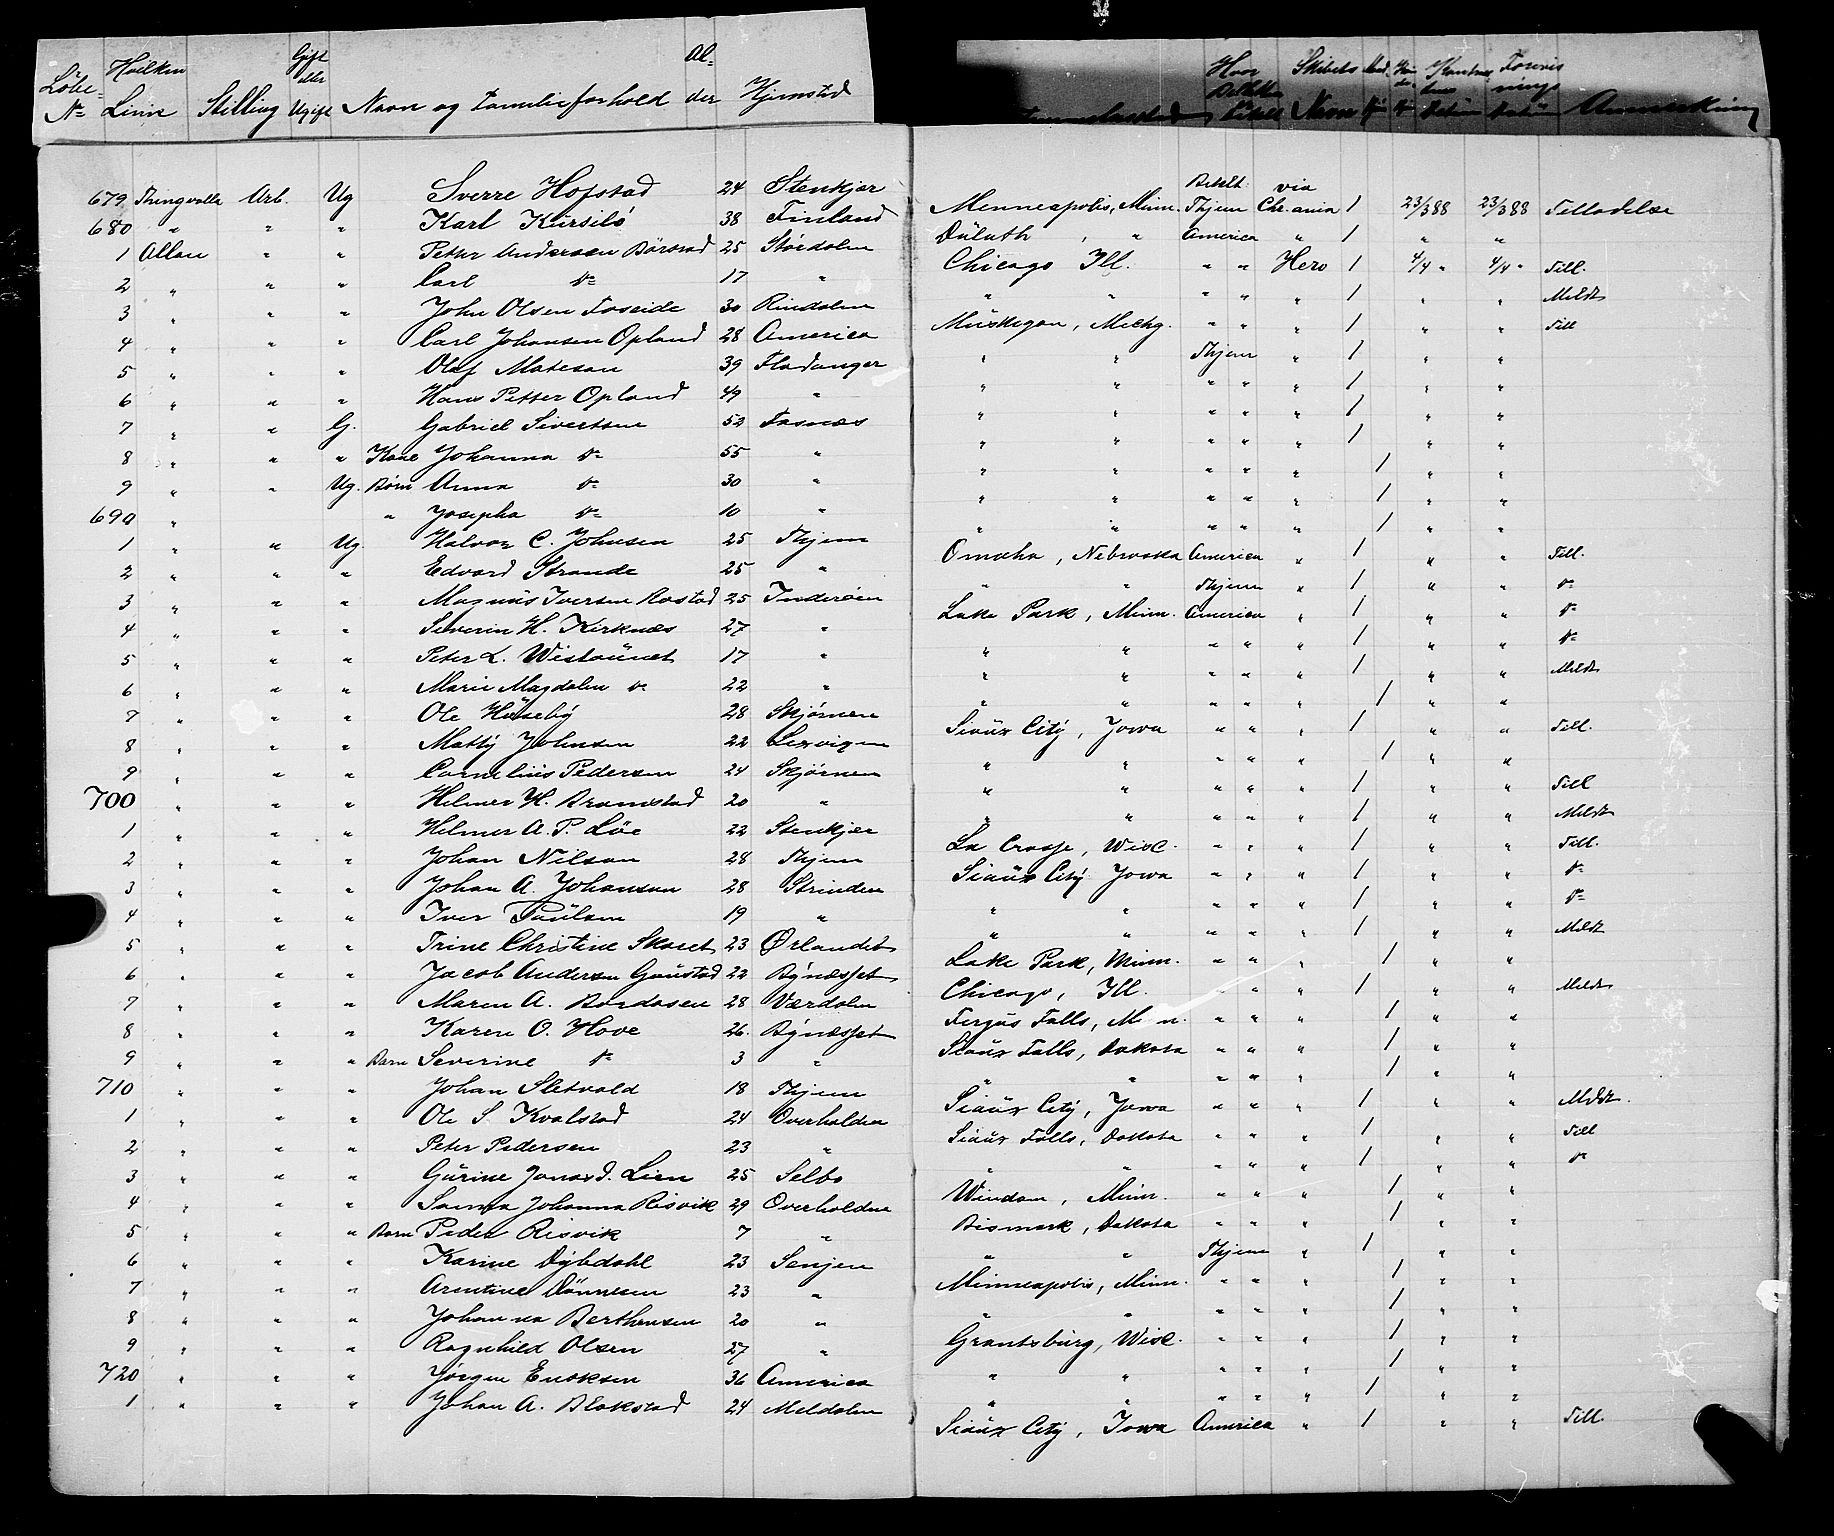 Löbe- No Hvilken Linie Stilling Gift eller Ugift Navn og Familieforhold Al- der Hjemsted Hvor Skibets Navn Anmærkning
679 Thingvalla Arb. Ug Sverre Hofstad 24 Stenkjær Minneapolis, Minn. Betalt: Thjem via Chr.ania 1 23/3 88 23/3 88 Tilladelse
680 " " " Karl Kürsilö 38 Finland Düluth, " America " 1 " "
1 Allan " " Petter Andersen Börstad 25 Stördalen Chicago Ill. " " Hero 1 4/4 " 4/4 " Till.
2 " " " Carl do 17 " " " " " " 1 " " Meldt
3 " " " John Olsen Foseide 30 Rindalen Müskegon, Michg. " " " 1 " " Till
4 " " " Carl Johansen Opland 28 America " " Thjem " 1 " "
5 " " " Olaf Matesan 39 Fladanger " " " " " 1 " "
6 " " " Hans Petter Opland 49 " " " " " " 1 " "
7 " " G. Gabriel Sivertsen 52 Fosnæs " " " " " 1 " "
8 " " " Kone Johanna do 55 " " " " " " 1 " "
9 " " Ug. Börn Anna do 30 " " " " " " 1 " "
690 " " Josepha do 10 " " " " " " 1 " "
1 " " Ug Halvor C. Johnsen 25 Thjem Omaha, Nebraska America " 1 " " Till.
2 " " " Edvard Strande 25 " " " Thjem " 1 " " do
3 " " " Magnüs Iversen Rostad 25 Inderöen Lake Park, Minn. America " 1 " " do
4 " " " Severin H. Kirknæs 27 " " " " " " 1 " " do
5 " " " Peter L. Wistaünet 17 " " " " " " 1 " " Meldt
6 " " " Marie Magdalen do 22 " " " " " " 1 " "
7 " " " Ole Hüseby 28 Skjörnen Sioüx City, Jowa " " " 1 " " Till.
8 " " " Matty Johnsen 22 Lexvigen " " " " " 1 " "
9 " " " Corneliüs Pedersen 24 Skjörnen " " " " " 1 " " Till
700 " " " Helmer H. Bramstad 20 " " " " " " 1 " " Meldt
1 " " " Helmer A. P. Löe 22 Stenkjær La Crosse, Wisc. " " " 1 " " Till.
2 " " " Johan Nilsen 28 Thjem Sioüx City Jowa " " " 1 " " do
3 " " " Johan A. Johansen 28 Strinden " " " " " 1 " " do
4 " " " Iver Paülsen 19 " " " " " " 1 " " Meldt
5 " " " Trine Christine Skaret 23 Ørlandet Lake Park, Minn. " " " 1 " "
6 " " " Jacob Andersen Gaustad 22 Bynæsset Chicago, Ill. " " " 1 " " Meldt
7 " " " Maren A. Bordasen 28 Værdalen Fergüs Falls, M n. " " " 1 " "
8 " " " Karen O. Hove 26. Bynæsset Sioüx Falls, Dakota " " " 1 " "
9 " " " Barn Severine do 3 " " " " " " 1 " "
710 " " " Johan Sletvold 18 Thjem Sioüx City, Jowa " " " 1 " " Meldt.
1 " " " Ole S. Kvalstad 24 Overhalden Sioüx Falls, Dakota " " " 1 " " Till
2 " " " Peter Pedersen 23 " " " " " " 1 " " do
3 " " " Gürine Jonasd. Lien 25 Selbo Windom, Minn. " " " 1 " "
4 " " " Sanna Johanna Risvik 29 Overhalden Bismark, Dakota " " " 1 " "
5 " " Barn Peder Risvik 7 " " " Thjem " 1 " "
6 " " " Karine Dybdahl 23 Senjen Minneapolis, Minn. " " " 1 " "
7 " " " Arntine Dönnesen 23 " " " " " " 1 " "
8 " " " Johanna Berthensen 20 " Grantsbürg, Wisc. " " " 1 " "
9 " " " Ragnhild Olsen 27 " " " " " " 1 " "
720 " " " Jörgen Ericksen 36 America " " " " " 1 " "
1 " " " Johan A. Blokstad 24 Meldalen Sioüx City, Jowa America " 1 " " Till.